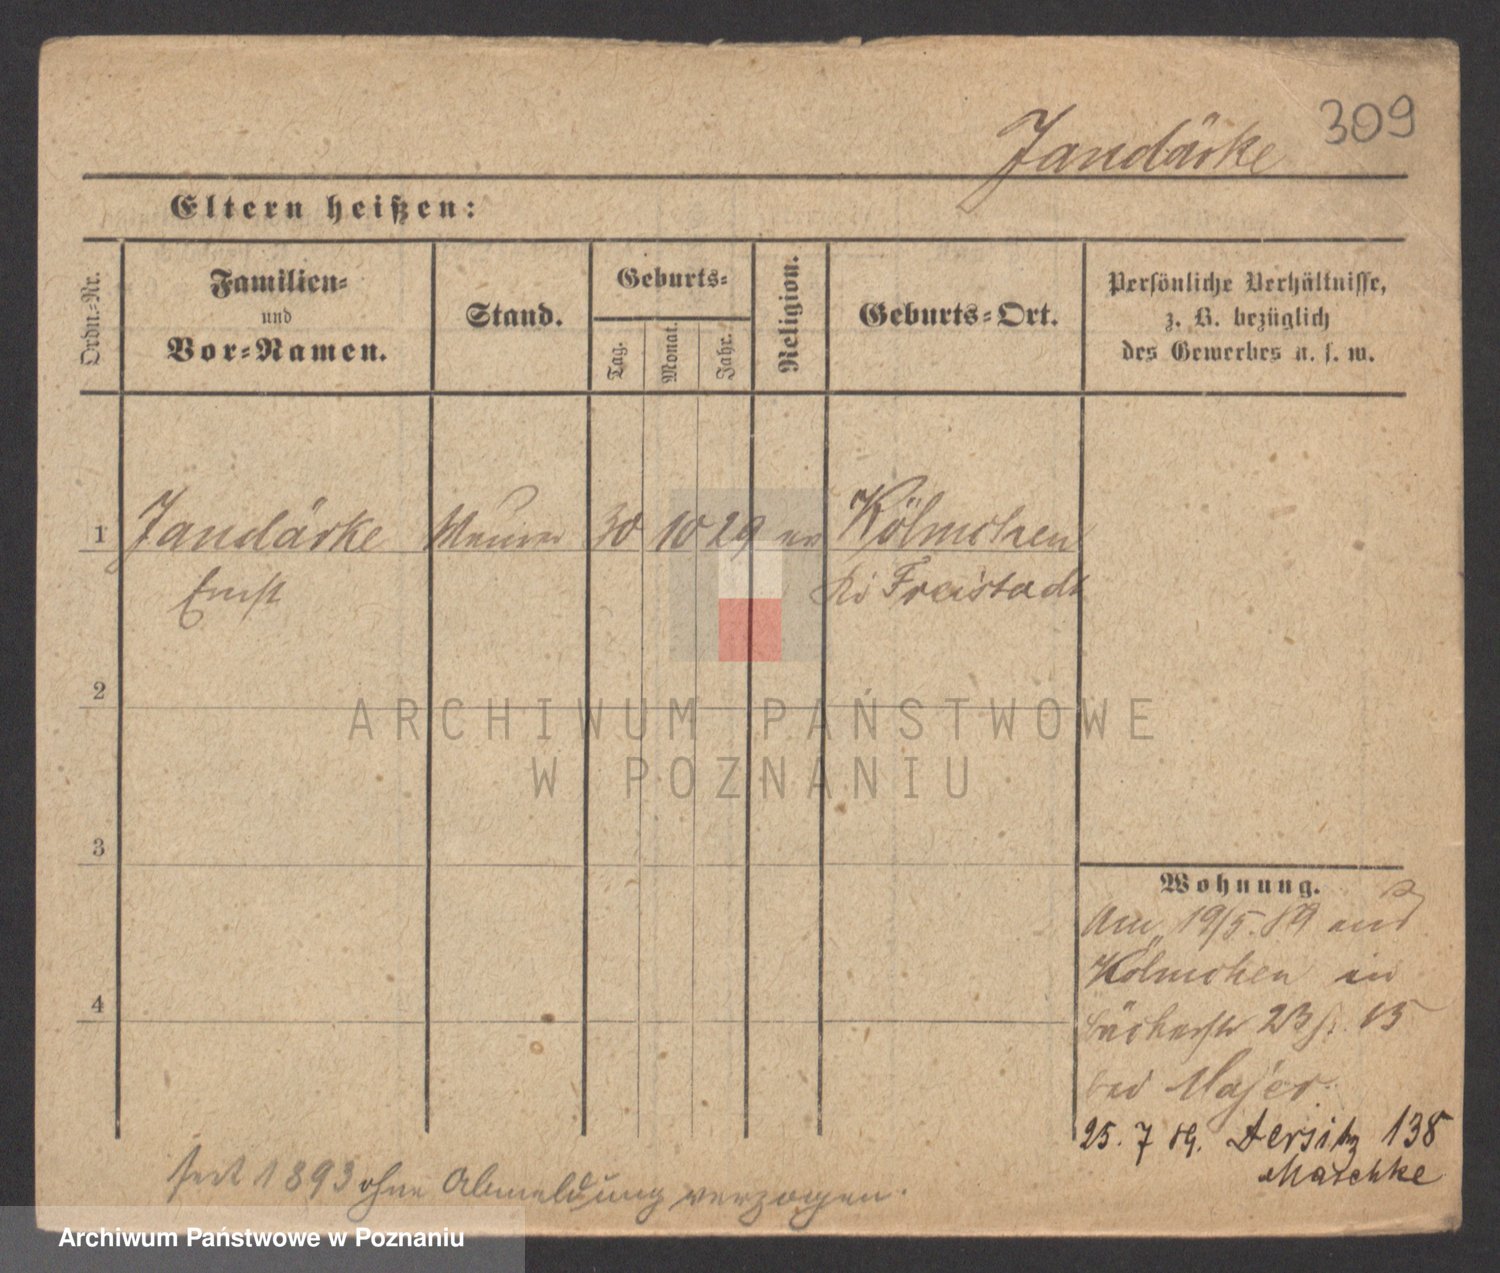 309
Jandärke
Eltern heißen:
Ordn.-Nr.
Familien-
und
Vor-Namen.
Stand.
Geburts-
Tag.
Monat.
Jahr.
Religion.
Geburts-Ort.
Persönliche Verhältnisse,
z. B. bezüglich
des Gewerbes u. s. w.
1
Jandärke
Maurer
30
10
29
ev
Kölmchen
Ernst
Freistadt
2
ARCHIWUM PAŃSTWOWE
W POZNANIU
3
Wohnung.
19/5. 89 aus
Kölmchen in
Bäckerstr 23 15
bei Majer
4
25. 7 89. Dersitz 138
Maschke
seit 1893 ohne Abmeldung verzogen.
Archiwum Państwowe w Poznaniu